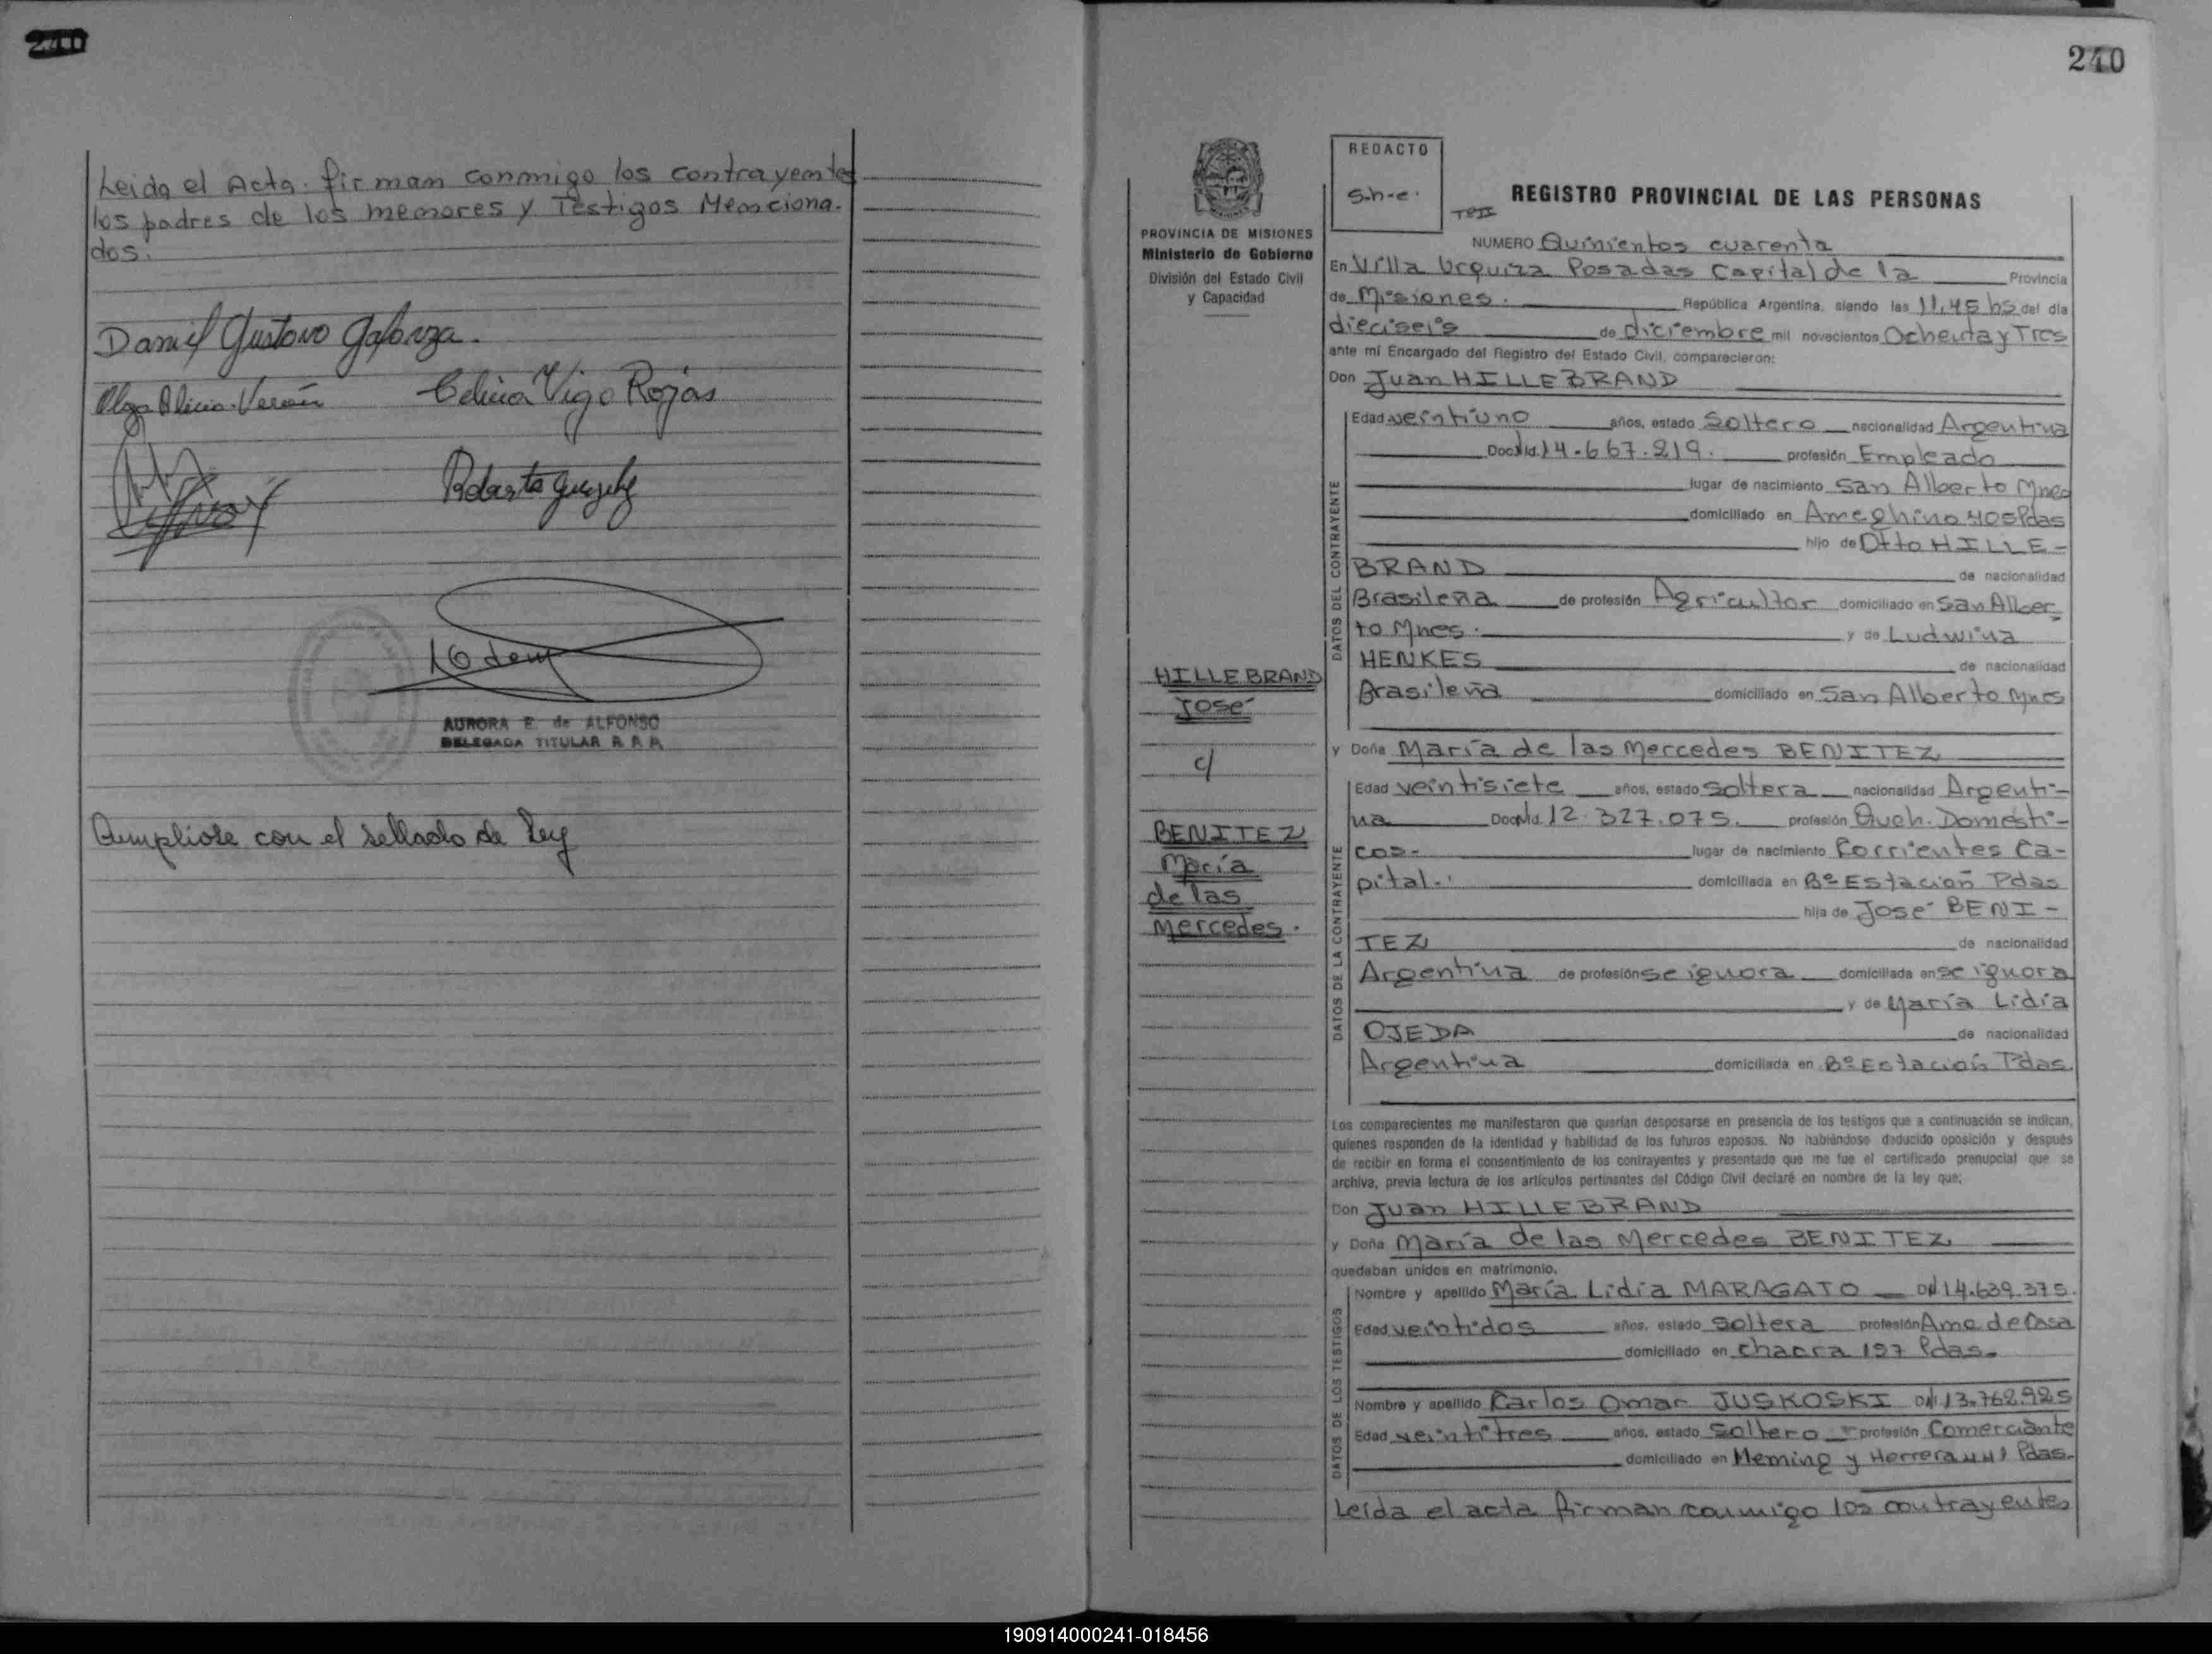 240
Leida el Acta. firman conmigo los contrayentes
los padres de los menores y Testigos Menciona-
dos.
Daniel Gustavo Galarza.
Olga Alicia Verón
Celina Vigo Rojas
Roberto
AURORA E. de ALFONSO
DELEGADA TITULAR R. P. P.
Cumpliose con el sellado de ley
240
PROVINCIA DE MISIONES
Ministerio de Gobierno
División del Estado Civil
y Capacidad
HILLEBRAND
José
c/
BENITEZ
María
de las
Mercedes.
REDACTO
S.h.e.
REGISTRO PROVINCIAL DE LAS PERSONAS
TºII
NUMERO Quinientos cuarenta
En Villa Urquiza Posadas Capital de la Provincia
de Misiones. República Argentina, siendo las 11,45 hs del día
dieciseis de diciembre mil novecientos Ochenta y Tres
ante mí Encargado del Registro del Estado Civil, comparecieron:
Don Juan HILLEBRAND
DATOS DEL CONTRAYENTE
Edad veintiuno años, estado Soltero nacionalidad Argentina
Doc. Id. 14.667.219. profesión Empleado
lugar de nacimiento San Alberto Mnes
domiciliado en Ameghino 405 Pdas
hijo de Otto HILLE-
BRAND de nacionalidad
Brasileña de profesión Agricultor domiciliado en San Alber
to Mnes. y de Ludwina
HENKES de nacionalidad
Brasileña domiciliado en San Alberto Mnes
y Doña María de las Mercedes BENITEZ
DATOS DE LA CONTRAYENTE
Edad veintisiete años, estado soltera nacionalidad Argenti-
na Doc. Id. 12.327.075. profesión Queh. Domésti-
cos- lugar de nacimiento Corrientes Ca-
pital. domiciliada en Bº Estación Pdas
hija de José BENI-
TEZ de nacionalidad
Argentina de profesión se ignora domiciliada en se ignora
y de María Lidia
OJEDA de nacionalidad
Argentina domiciliada en Bº Estación Pdas.
Los comparecientes me manifestaron que querían desposarse en presencia de los testigos que a continuación se indican,
quienes responden de la identidad y habilidad de los futuros esposos. No habiéndose deducido oposición y después
de recibir en forma el consentimiento de los contrayentes y presentado que me fue el certificado prenupcial que se
archiva, previa lectura de los artículos pertinentes del Código Civil declaré en nombre de la ley que:
Don Juan HILLEBRAND
y Doña María de las Mercedes BENITEZ
quedaban unidos en matrimonio.
DATOS DE LOS TESTIGOS
Nombre y apellido María Lidia MARAGATO DNI 14.639.375.
Edad veintidos años, estado Soltera profesión Ama de Casa
domiciliado en Chacra 197 Pdas.
Nombre y apellido Carlos Omar JUSKOSKI DNI 13.762.925
Edad veintitres años, estado Soltero profesión Comerciante
domiciliado en Fleming y Herrera Pdas.
Leída el acta firman conmigo los contrayentes
190914000241-018456